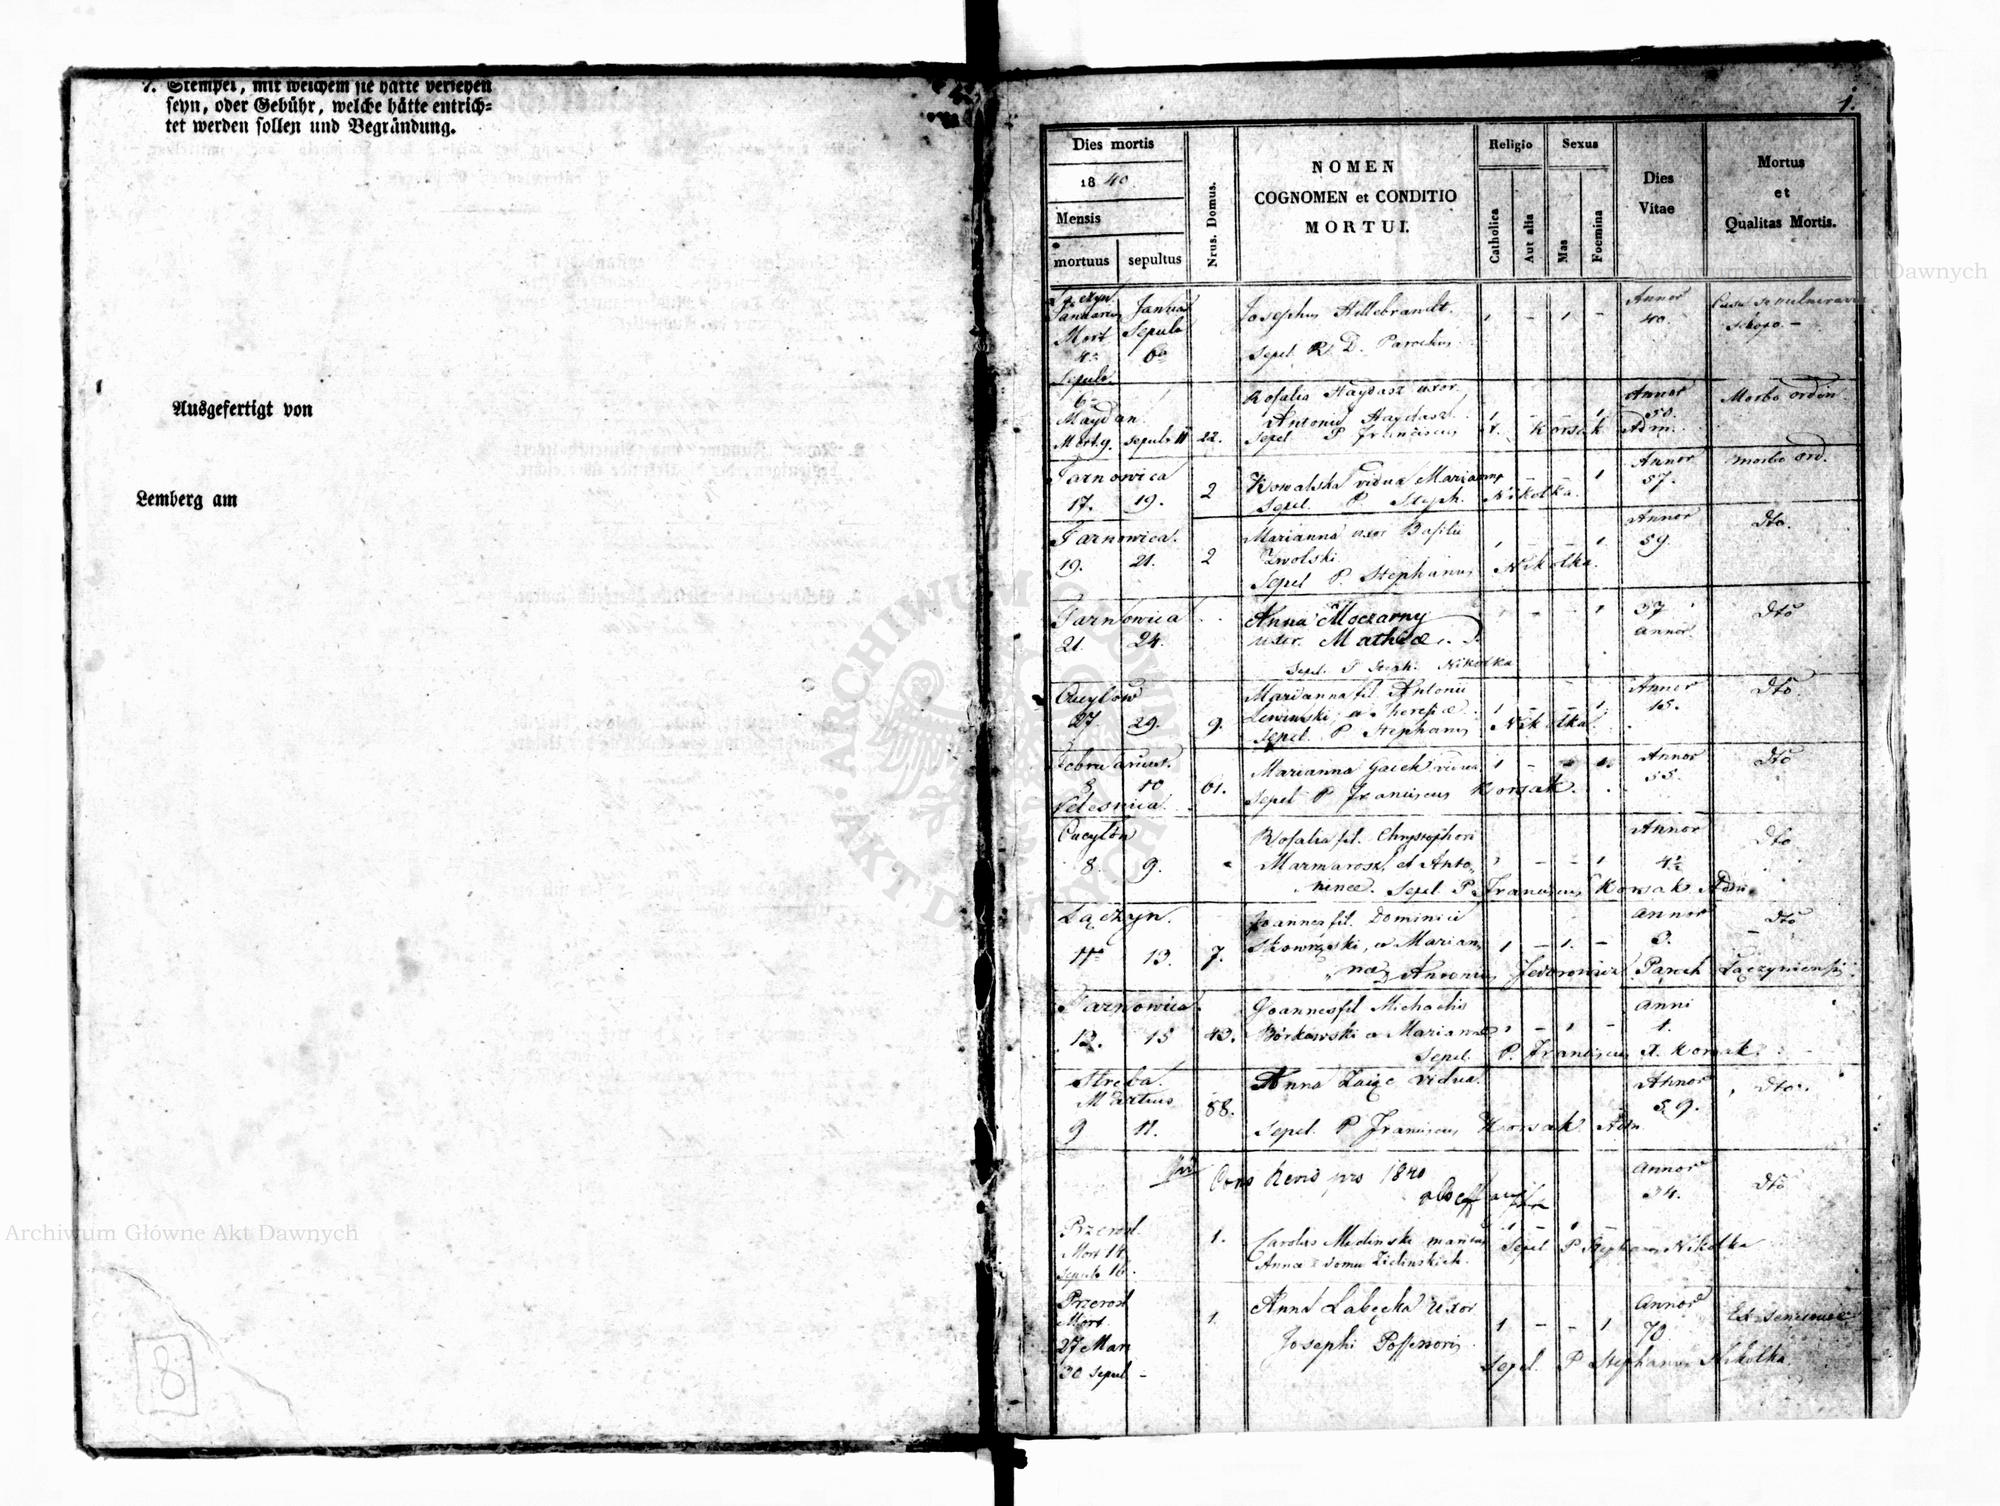 7. Stempel, mit welchem sie hätte versehen
seyn, oder Gebühr, welche hätte entrich-
tet werden sollen und Begründung.
Ausgefertigt von
Lemberg am
8
1.
Dies mortis
1840.
Mensis
mortuus
sepultus
Nrus. Domus.
NOMEN
COGNOMEN et CONDITIO
MORTUI.
Religio
Catholica
Aut alia
Sexus
Mas
Foemina
Dies
Vitae
Mortus
et
Qualitas Mortis.
Januarius
Mort
4a
Sepult.
6a
Januar
Sepult
6a
Josephus Hillebrandt.
Sepel. R. D. Parochus.
1 - 1 -
Annor
40.
Maydan.
Mort 9. sepult 11 22.
Rosalia Haydasz uxor
Antonii Haydasz.
Sepel P Franciscus X. Korsak Adm.
1 - - 1
Annor
50.
Morbo ordin.
Tarnowica
17. 19. 2
Kowalska vidua Marianna
Sepel. P. Steph. Nikolka.
Annor
57.
morbo ord.
Tarnowica.
19. 21. 2
Marianna uxor Basilii
Zwolski
Sepel P. Stephanus Nikolka.
1 - - 1.
Annor
59.
dto.
Tarnowica
21. 24.
Anna Moczarny
uxor Mathiae
Sepel. P Steph. Nikolka
1 - - 1
37
annor.
dto
27. 29. 9.
Marianna fil. Antonii
Lewinski, et Theresiae.
Sepel. P Stephanus Nikolka
1 - - 1.
Annor
15.
dto.
Februarius.
8 10 61.
Velesnica.
Marianna Gacek vidua
Sepel P Franciscus Korsak.
Annor
55.
dto
8. 9.
Rosalia fil. Chrystophori
Marmarosz, et Anto-
ninae. Sepel P. Franciscus Korsak Adm.
1 - - 1
Annor
4½
dto
Łączyn.
11 13. 7.
Joannes fil. Dominici
Skowroński, et Marian-
na, Antonius Fedorowicz Paroch Łączyniensis.
1 - 1. -
annor
3.
dto
Tarnowica.
13. 15 43.
Joannes fil Michaelis
Borkowski et Marianna
Sepel P. Franciscus X. Korsak.
1 - 1 -
anni
1.
Streba.
Martius
9 11. 88.
Anna Zaic vidua.
Sepel. P Franciscus Korsak. Adm
Annor
59.
dto.
pro 1840
Przerosl
Mort 14
sepult 16.
1.
Carolus Medinski maritus
Anna domu Zielinskich.
Sepel P Stephanus Nikolka
1 - 1 -
Annor
34.
dto
Przerosl
Mort.
27 Mart
30 sepul -
1.
Anna Łabęcka uxor
Josephi Possessoris
Sepel. P Stephanus Nikolka
1 - - 1
Annor
70.
Archiwum Główne Akt Dawnych
Archiwum Główne Akt Dawnych
ARCHIWUM GŁÓWNE AKT DAWNYCH